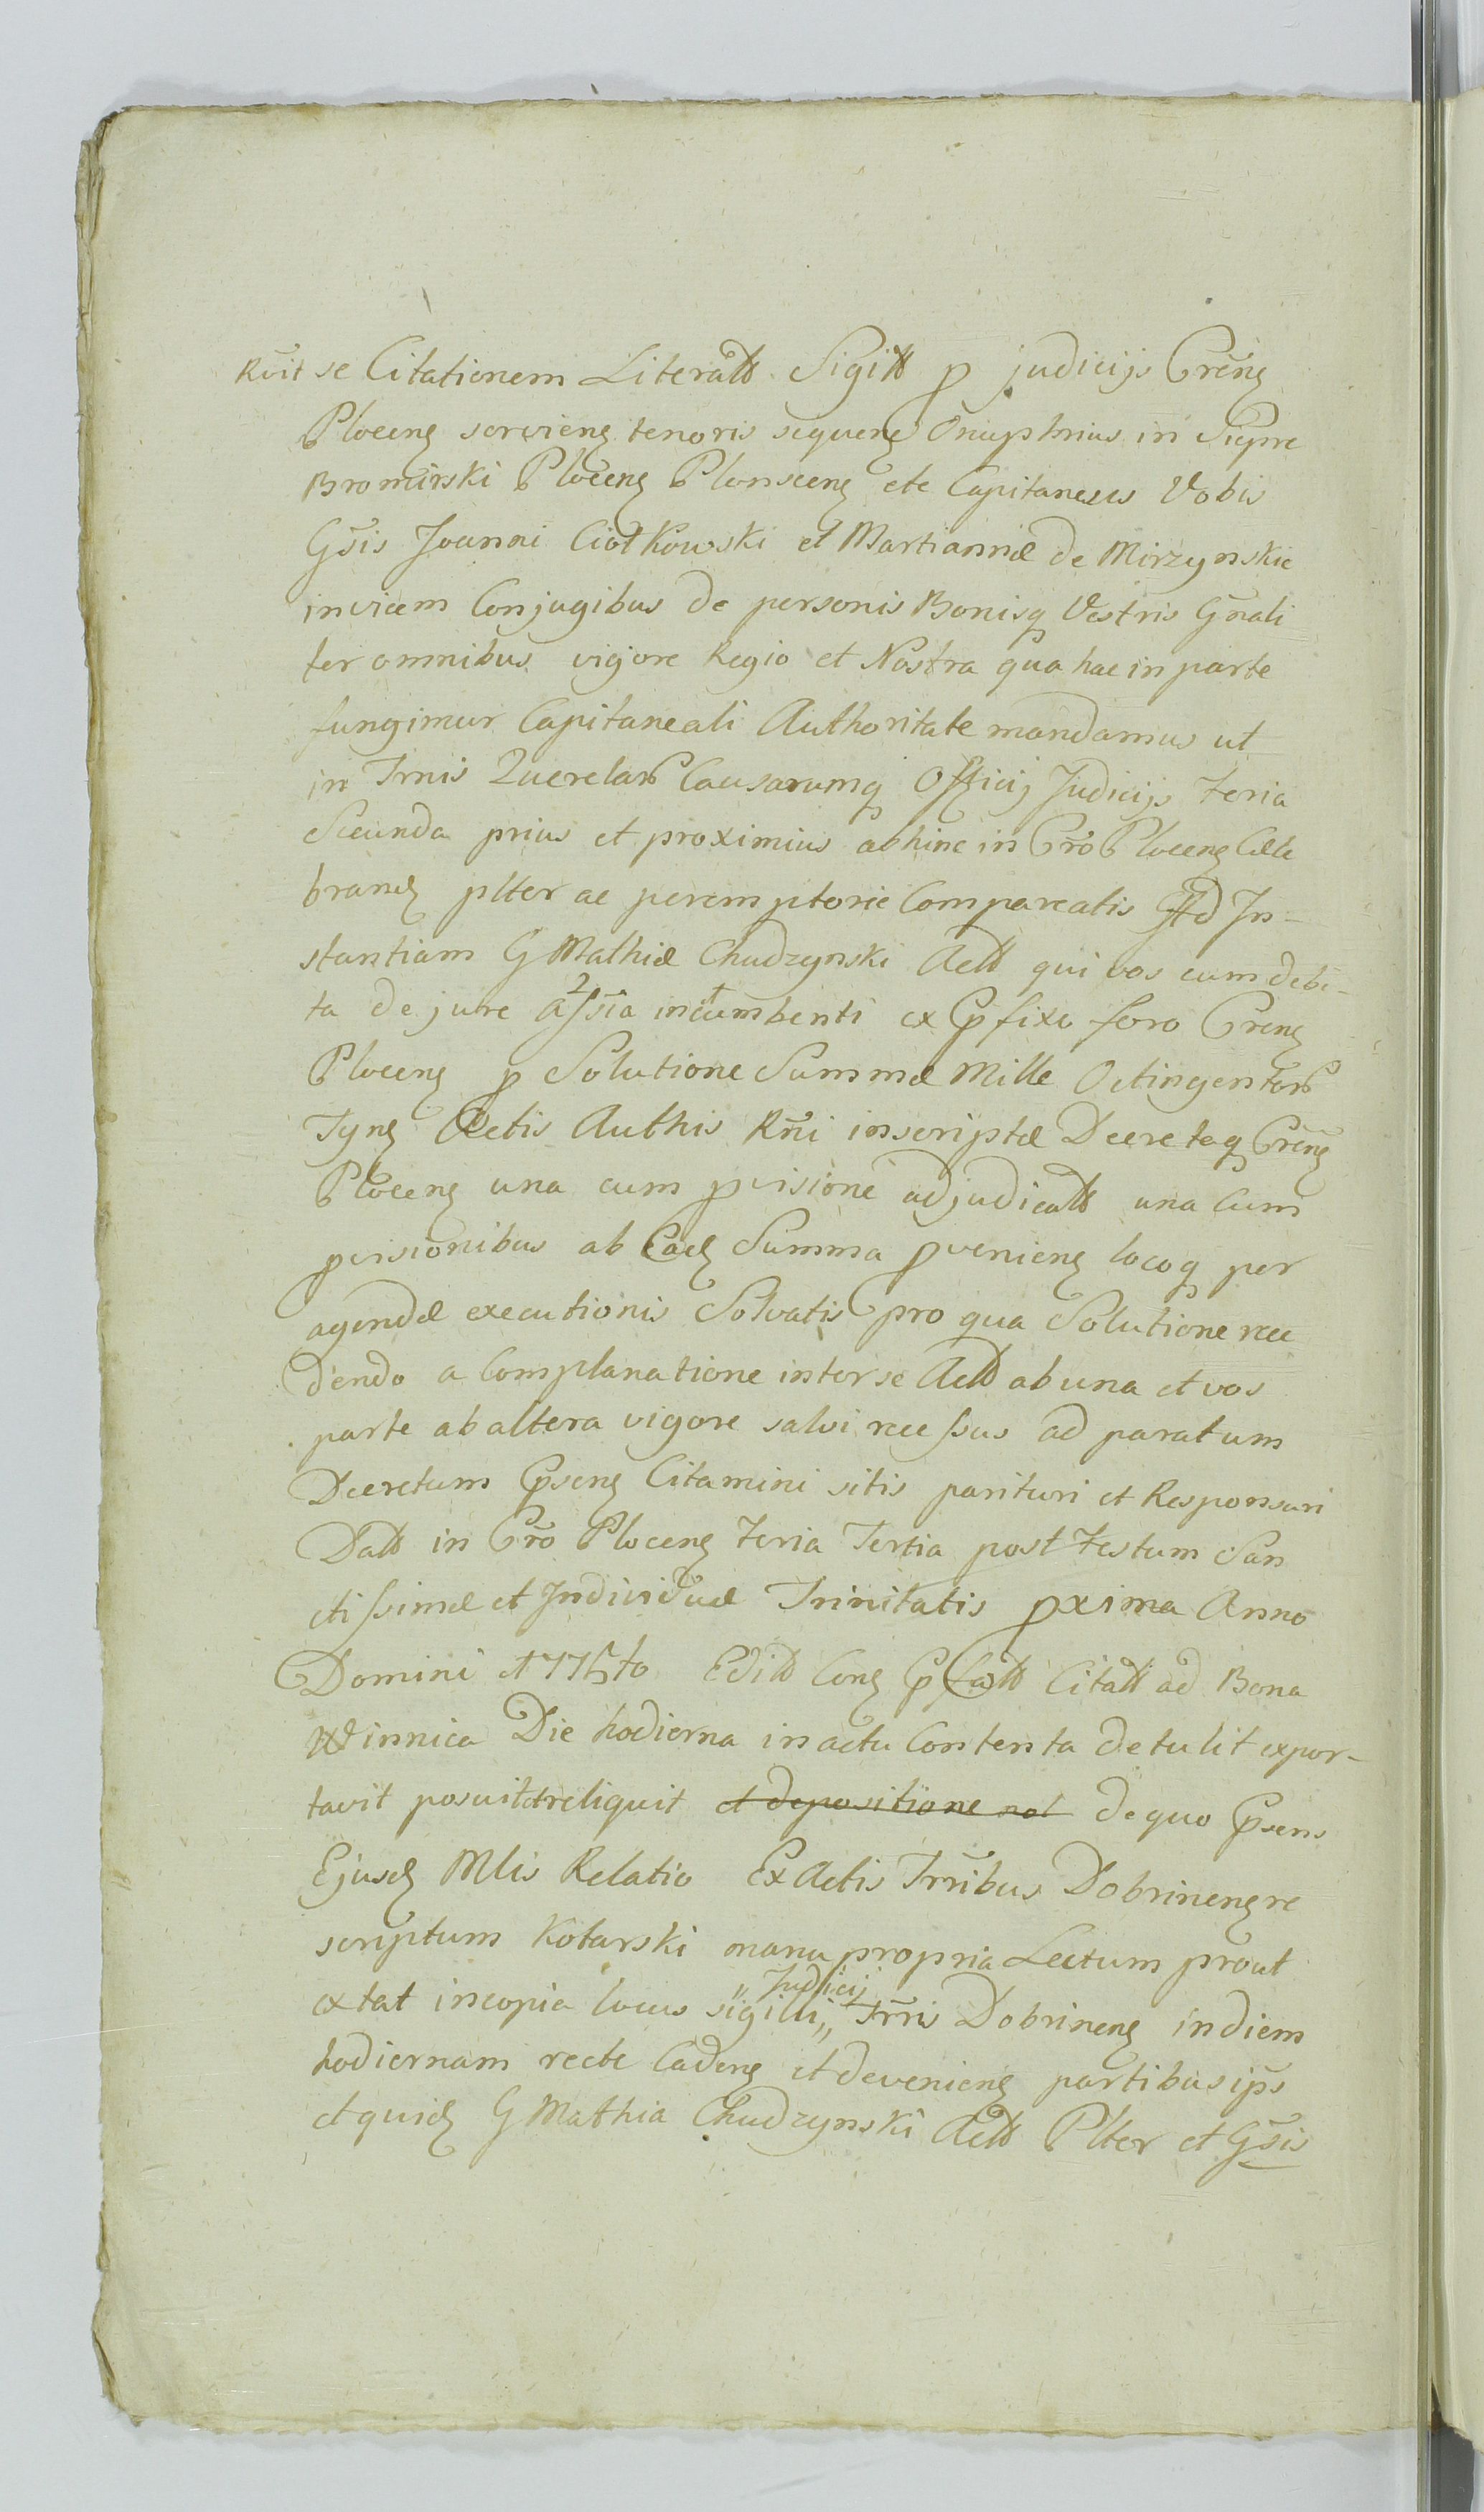 Rvit se Citationem Literatt Sigitt p judicijs Crēnę
Plocenę servienę tenoris sequenę Onuphrius in Siepre
Bromirski Plocenę Plonscenę etc Capitaneus Vobis
Gsis Joanni Ciołkowski et Martiannæ de Mirzynskie
invicem Conjugibus de personis Bonisq Vestris Gnali
ter omnibus vigore Regio et Nostra qua hac in parte
fungimur Capitaneali Authoritate mandamus ut
in Trnis Querelar Causarumq Officij Judicijs Feria
Secunda prius et proximius abhinc in Cro Plocenę Cele
brandę plter ac peremptorie Compareatis Ad In-
stantiam G Mathiæ Chudzynski Actt qui vos cum debi-
ta de jure assia incumbenti ex Pfixo foro Crenę
Plocenę p Solutione Summæ Mille Octingentor
Tynę Actis Authis Rni inscriptæ Decretoq Crēnę
Plocenę una cum pvisione adjudicatt una cum
pvisionibus ab Eadę Summa pvenienę locoq per
agendæ executionis Solvatis pro qua Solutione rece
dendo a Complanatione inter se Actt ab una et vos
parte ab altera vigore salvi recessus ad paratum
Decretum Psenę Citamini sitis parituri et Responsuri
Datt in Cro Plocenę Feria Tertia post Festum San
ctissimæ et Individuæ Trinitatis pxima Anno
Domini 1775to Editt Conę Pfatt Citatt ad Bona
Winnica Die hodierna in actu Contenta detulit expor-
tavit posuit et reliquit et depositione not de quo Psens
Ejusdę Mlis Relatio Ex Actis Trribus Dobrinenę re
scriptum Kotarski manu propria Lectum prout
extat in copia locus sigilli,, Judicij Trris Dobrinenę in diem
hodiernam recte Cadenę et devenienę partibus ips
et quidę G Mathia Chudzynski Actt Plter et Gsis